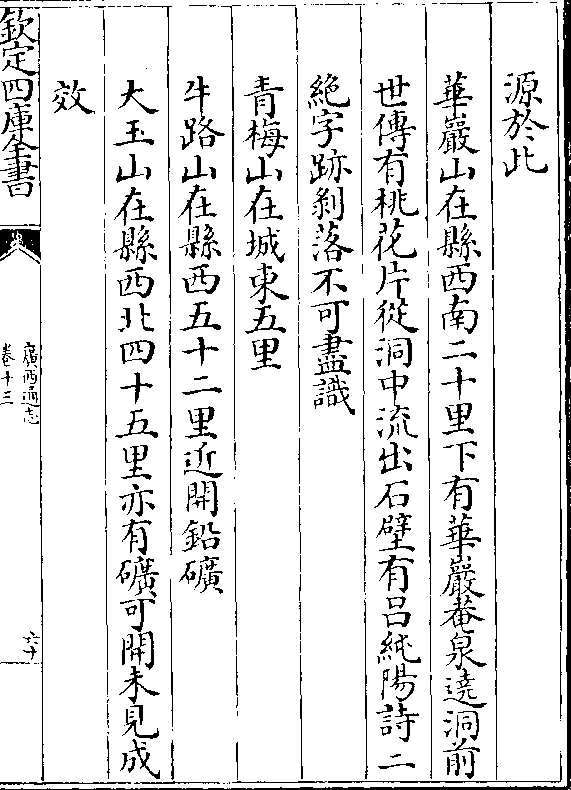 源於此
華巖山在縣西南二十里下有華巖菴泉遶洞前
世傳有桃花片從洞中流出石壁有呂純陽詩二
絶字跡剝落不可盡識
青梅山在城東五里
牛路山在縣西五十二里近開鉛礦
大玉山在縣西北四十五里亦有礦可開未見成
效
欽定四庫全書
廣西通志
卷十三
六十